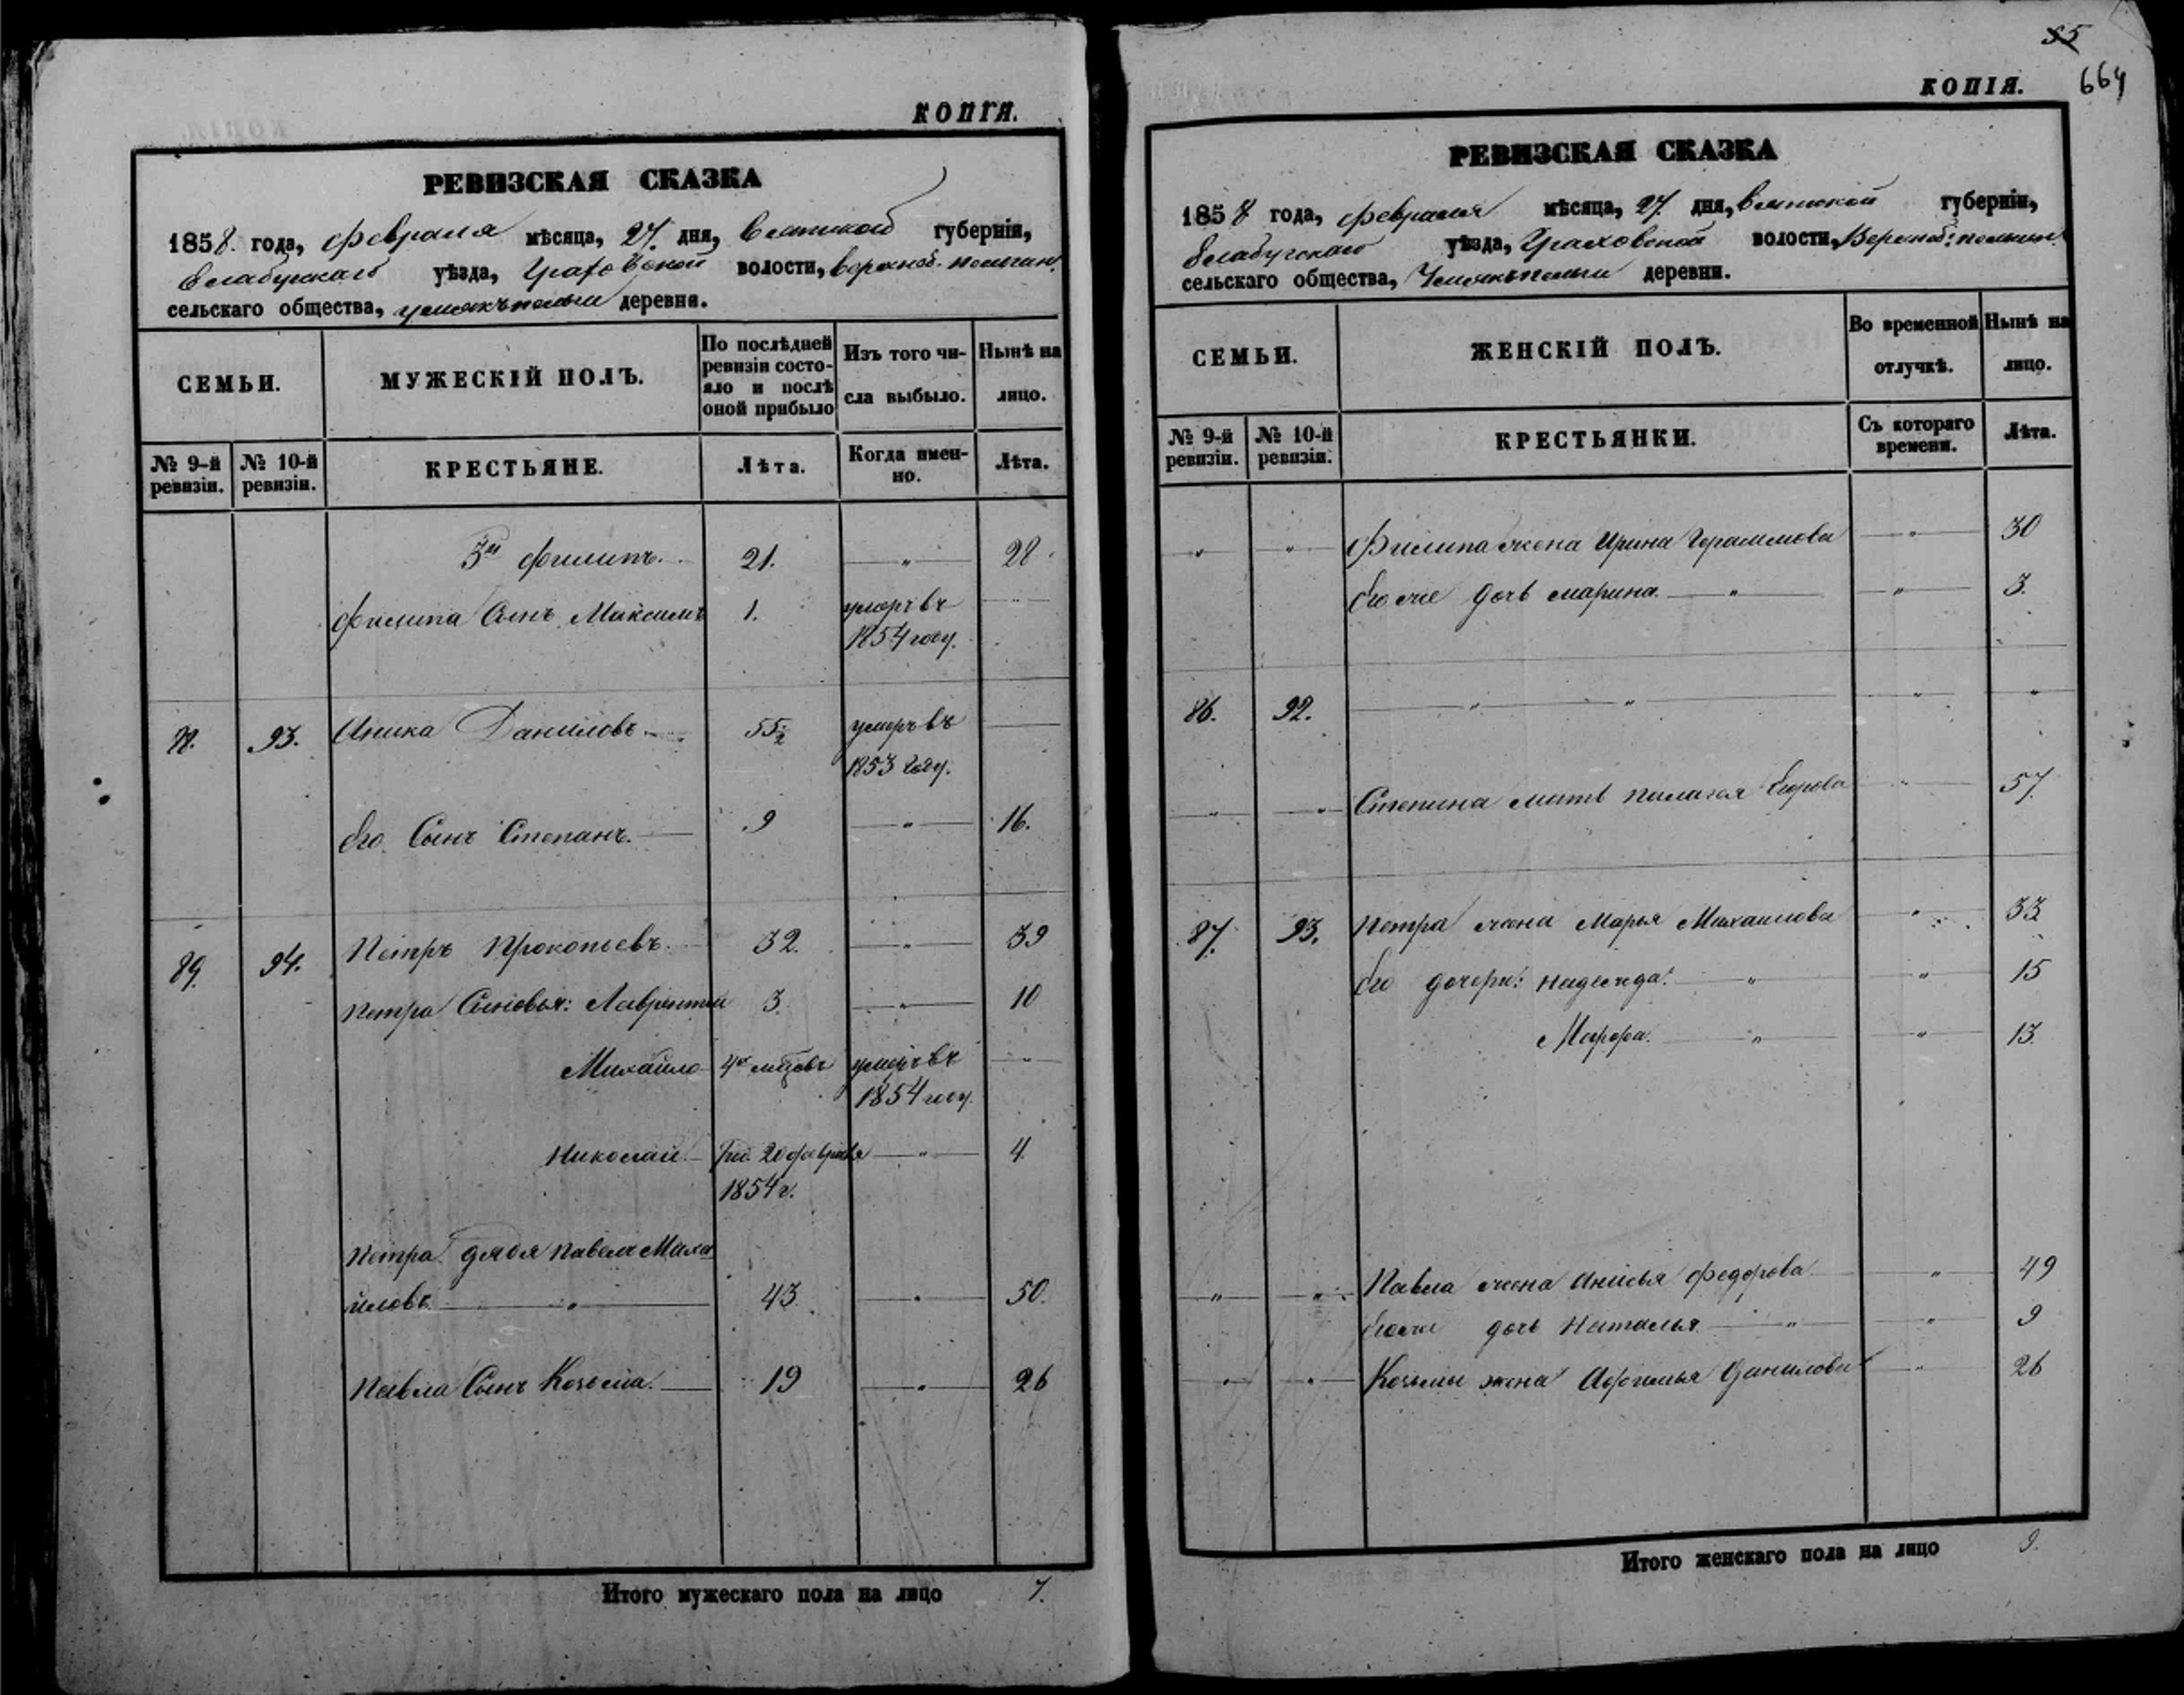 КОПІЯ.
РЕВИЗСКАЯ СКАЗКА
1858. года, февраля мѣсяца, 27. дня, Вятской губерніи,
Елабугскаго уѣзда, Граховской волости,
сельскаго общества, деревни.
СЕМЬИ.
МУЖЕСКІЙ ПОЛЪ.
По послѣдней ревизіи состо-
яло и послѣ оной прибыло
Изъ того чи-
сла выбыло.
Нынѣ на
лицо.
№ 9-й ревизіи.
№ 10-й ревизіи.
КРЕСТЬЯНЕ.
Лѣта.
Когда имен-
но.
Лѣта.
3й Филипъ. 21. — " — 28.
Филипа Сынъ Максимъ 1. умеръ въ
1854 году.
93. Аника Даниловъ 55½ умеръ въ
1853 году.
Его Сынъ Степанъ. 9 — " — 16.
89. 94. Петръ Прокопьевъ. 32. — " — 39
Петра Сыновья: Лаврентій 3. — " — 10
Михайло умеръ въ
1854 году.
Николай 20 февраля — " — 4
1854 г.
Петра дядя Павелъ Миха
йловъ. — " — 43. — " — 50.
Павла Сынъ Козьма. 19 — " — 26
Итого мужескаго пола на лицо 7.
55
664
КОПІЯ.
РЕВИЗСКАЯ СКАЗКА
1858 года, февраля мѣсяца, 27. дня, Вятской губерніи,
Елабугскаго уѣзда, Граховской волости,
сельскаго общества, деревни.
СЕМЬИ.
ЖЕНСКІЙ ПОЛЪ.
Во временной
отлучкѣ.
Нынѣ на
лицо.
№ 9-й ревизіи.
№ 10-й ревизіи.
КРЕСТЬЯНКИ.
Съ котораго
времени.
Лѣта.
" " Филипа жена Ирина Герасимова — " — 30
Его же дочь Марина. — " — " — 3.
86. 92. — " — " — " — "
" " Степана мать Палагея Егорова " 57.
87. 93. Петра жена Марья Михайлова " 33
Его дочери: Надежда. — " — " — 15
Марфа. — " — " — 13.
" " Павла жена Анисья Федорова " 49
Его же дочь Наталья — " — " — 9
" " Козьмы жена Афимья Данилова " 26
Итого женскаго пола на лицо 9.